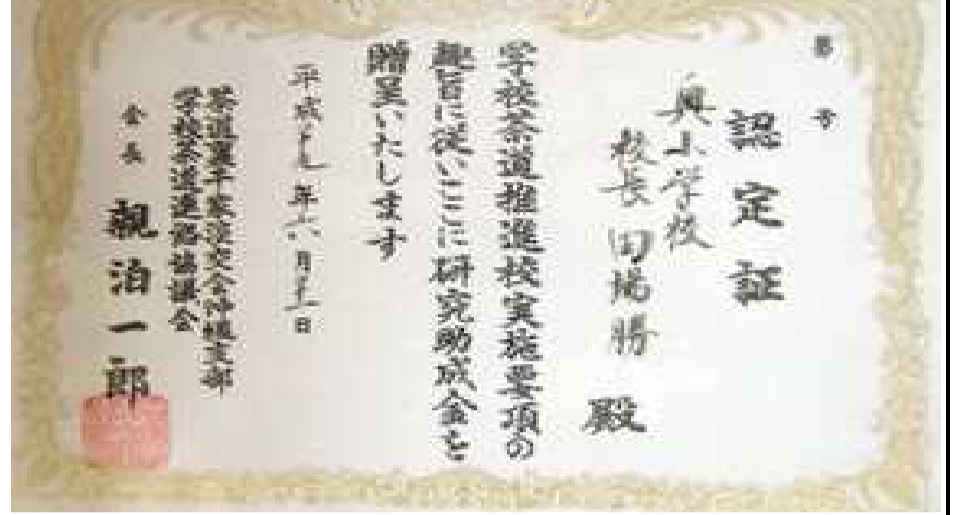 第　号
認定証
奥小学校
校長 田場勝 殿
学校茶道推進校実施要項の
趣旨に従いここに研究助成金を
贈呈いたします
平成十九年六月 日
茶道裏千家淡交会沖縄支部
学校茶道連絡協議会
会長 親泊一郎